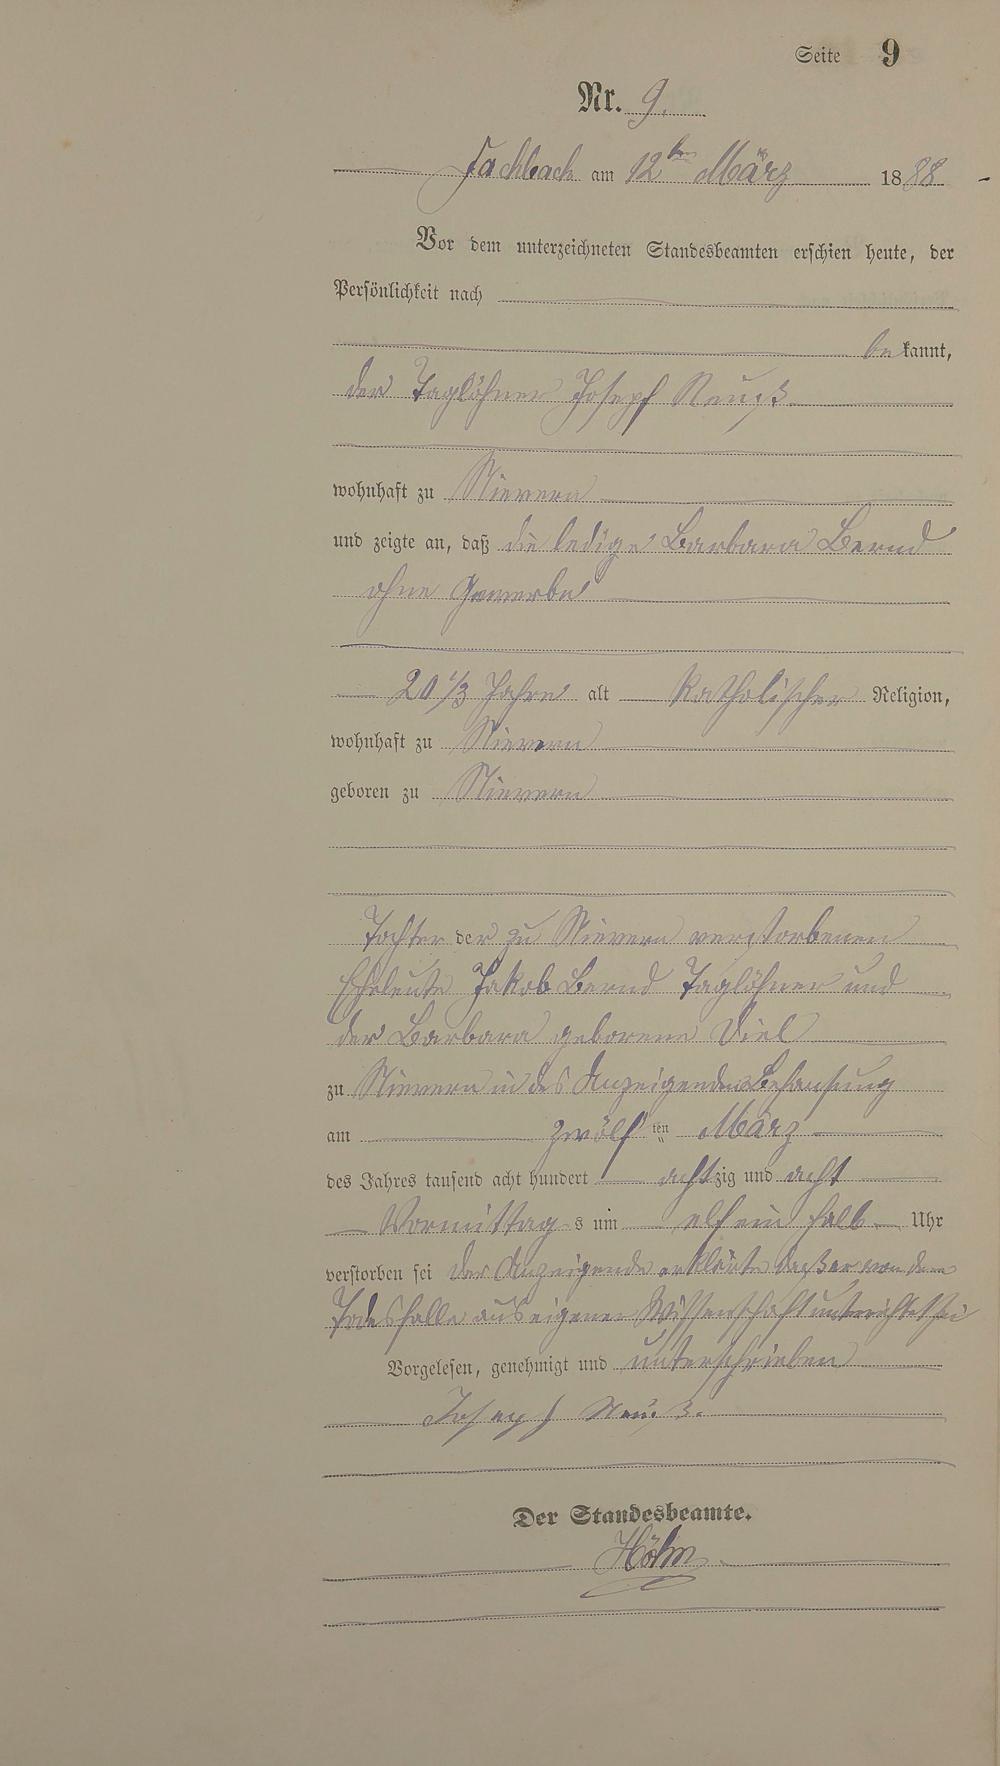 Seite 9
Nr. 9.
Fachbach am 12ten März 1888
Vor dem unterzeichneten Standesbeamten erschien heute, der
Persönlichkeit nach
bekannt,
der Taglöhner Joseph Neuß
wohnhaft zu Nievern
und zeigte an, daß die ledige Barbara Bernd
ohne Gewerbe
20 1/3 Jahre alt katholischer Religion,
wohnhaft zu Nievern
geboren zu Nievern
Tochter der zu Nievern verstorbenen
Eheleute Jakob Bernd Taglöhner und
der Barbara geborene Diel
zu Nievern in des Anzeigenden Behausung
am zwölften März
des Jahres tausend acht hundert achtzig und acht
Vormittags um elf ein halb Uhr
verstorben sei der Anzeigende erklärte daß er von dem
Todesfalle aus eigener Wissenschaft unterrichtet sei
Vorgelesen, genehmigt und unterschrieben
Joseph Neuß.
Der Standesbeamte.
Höhn